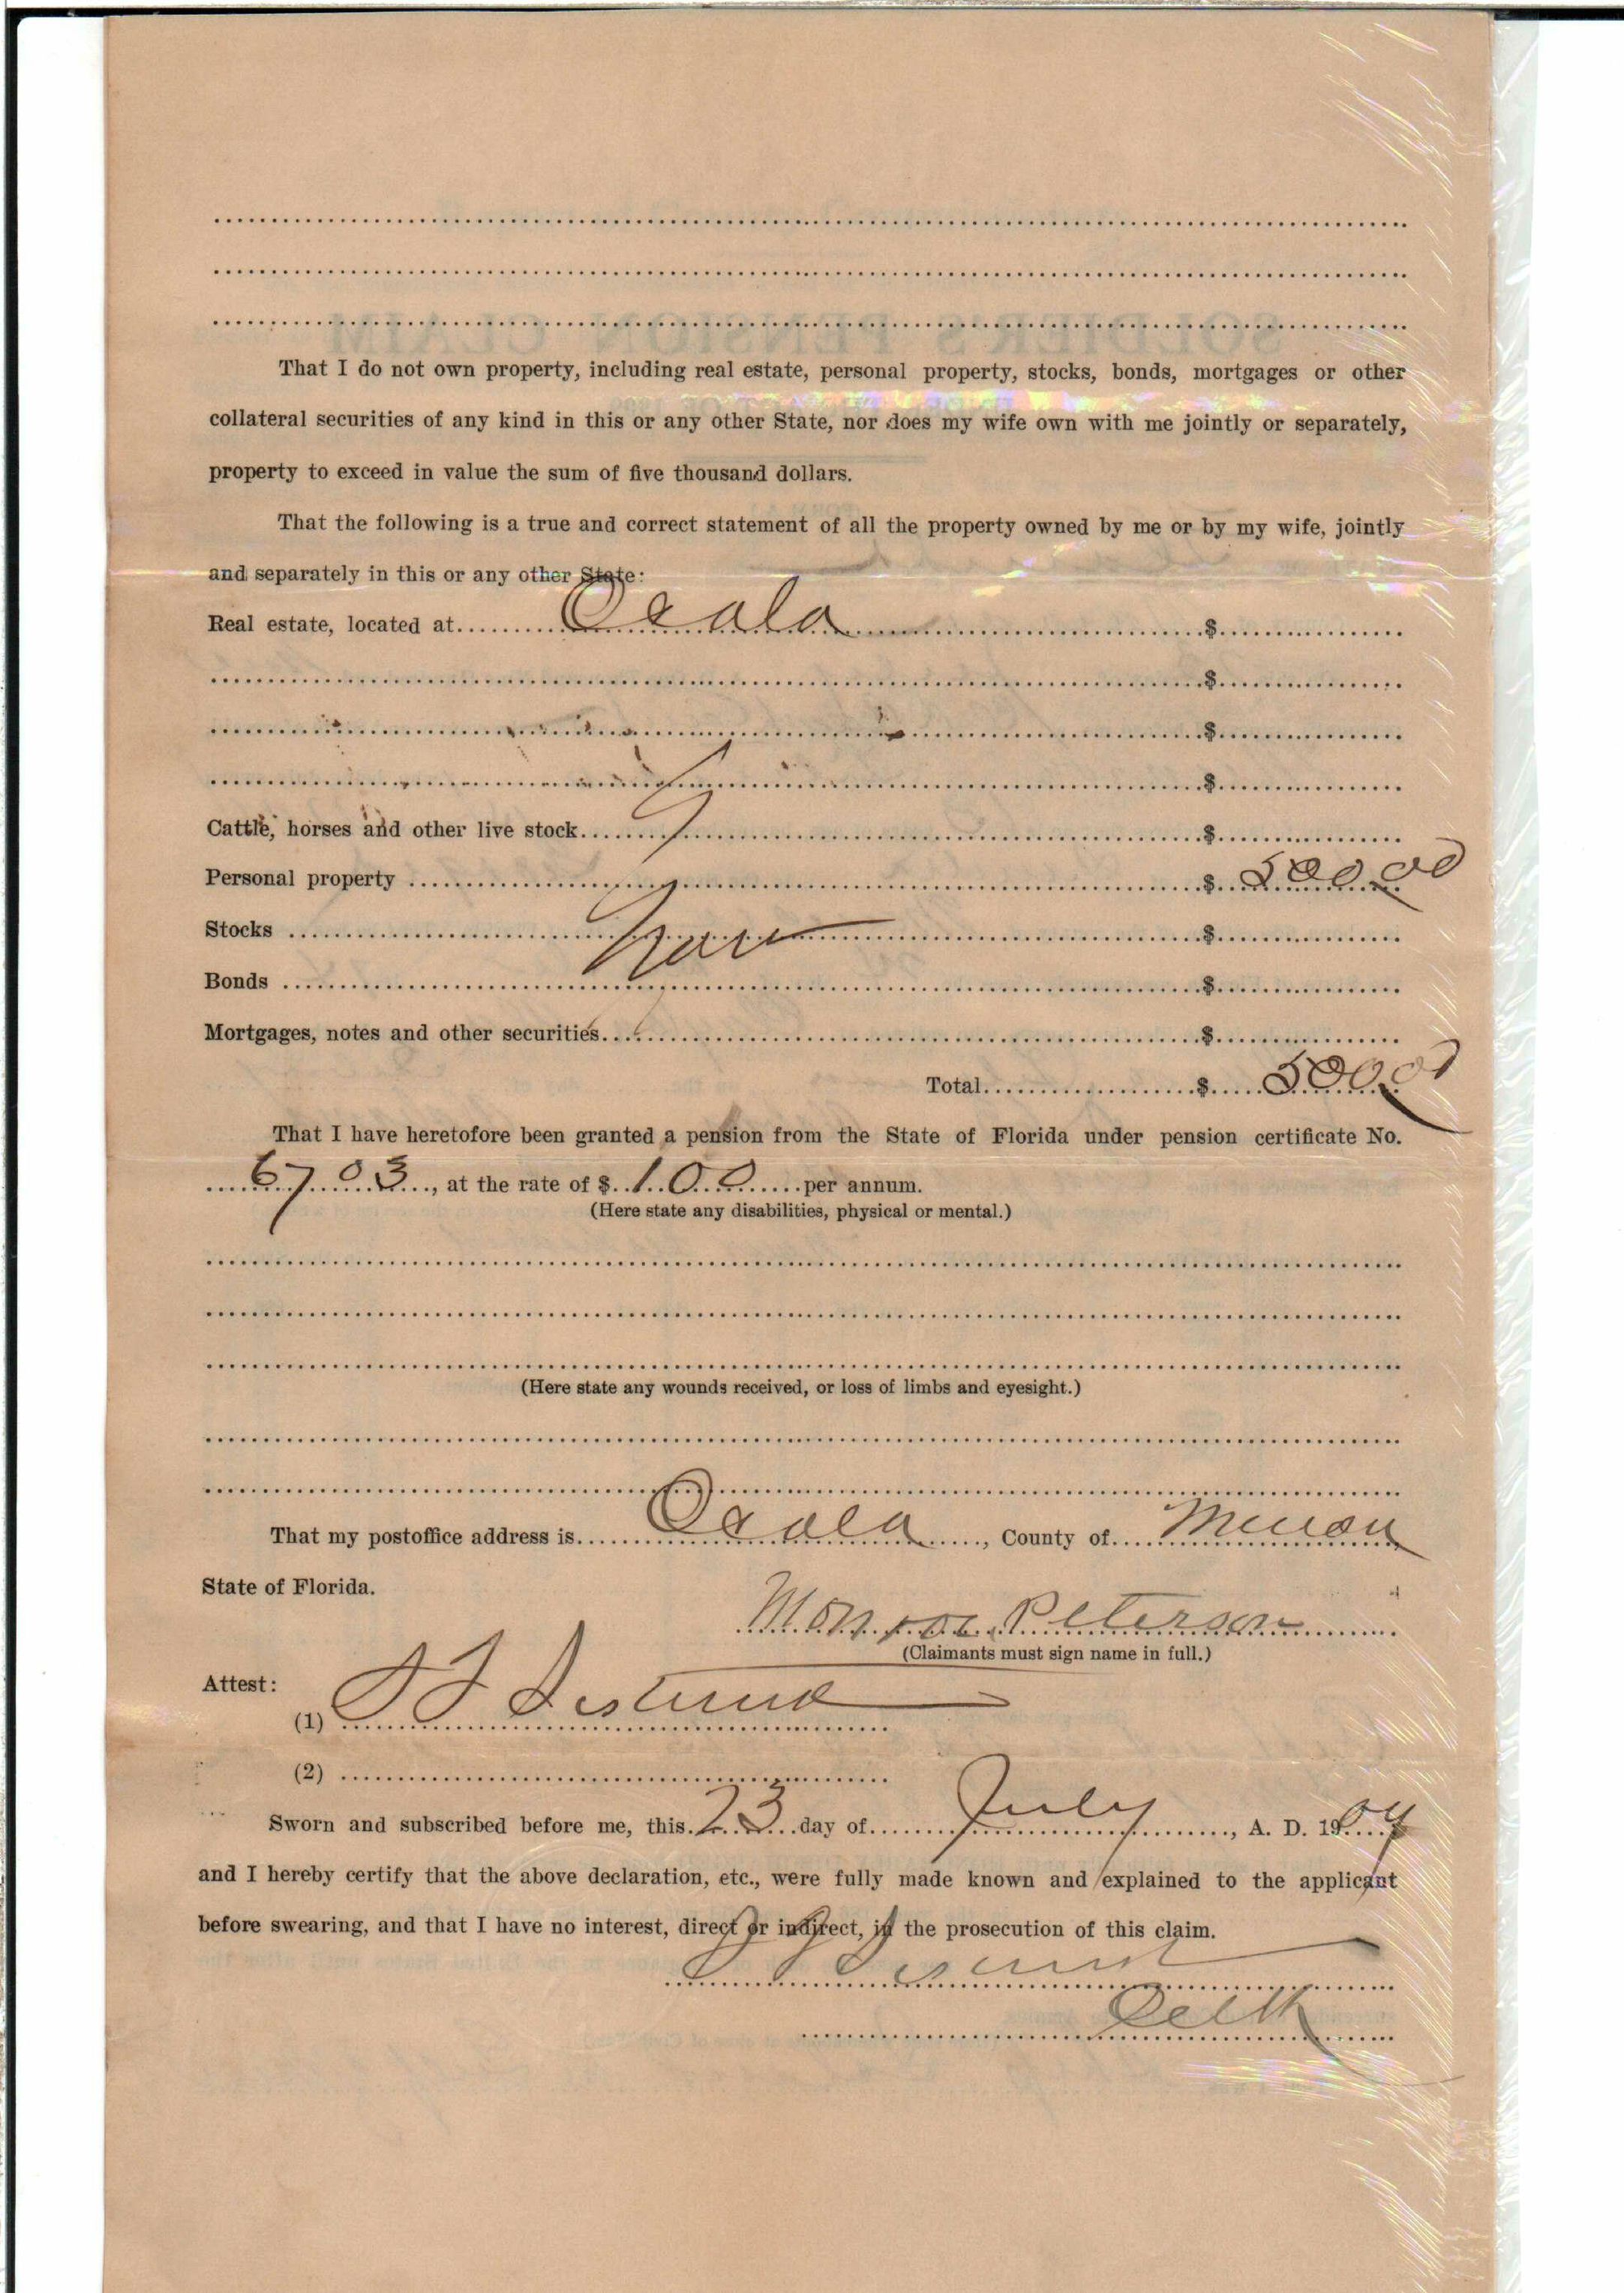 That I do not own property, including real estate, personal property, stocks, bonds, mortgages or other
collateral securities of any kind in this or any other State, nor does my wife own with me jointly or separately,
property to exceed in value the sum of five thousand dollars.
That the following is a true and correct statement of all the property owned by me or by my wife, jointly
and separately in this or any other State:
Real estate, located at Ocala $
$
$
$
Cattle, horses and other live stock $
Personal property $ 500.00
Stocks $
Bonds $
Mortgages, notes and other securities $
Total $ 500.00
That I have heretofore been granted a pension from the State of Florida under pension certificate No.
6703, at the rate of $ 100 per annum.
(Here state any disabilities, physical or mental.)
(Here state any wounds received, or loss of limbs and eyesight.)
That my postoffice address is Ocala, County of Marion
State of Florida.
Monroe Peterson
(Claimants must sign name in full.)
Attest:
(1)
(2)
Sworn and subscribed before me, this 23 day of July, A. D. 190
and I hereby certify that the above declaration, etc., were fully made known and explained to the applicant
before swearing, and that I have no interest, direct or indirect, in the prosecution of this claim.